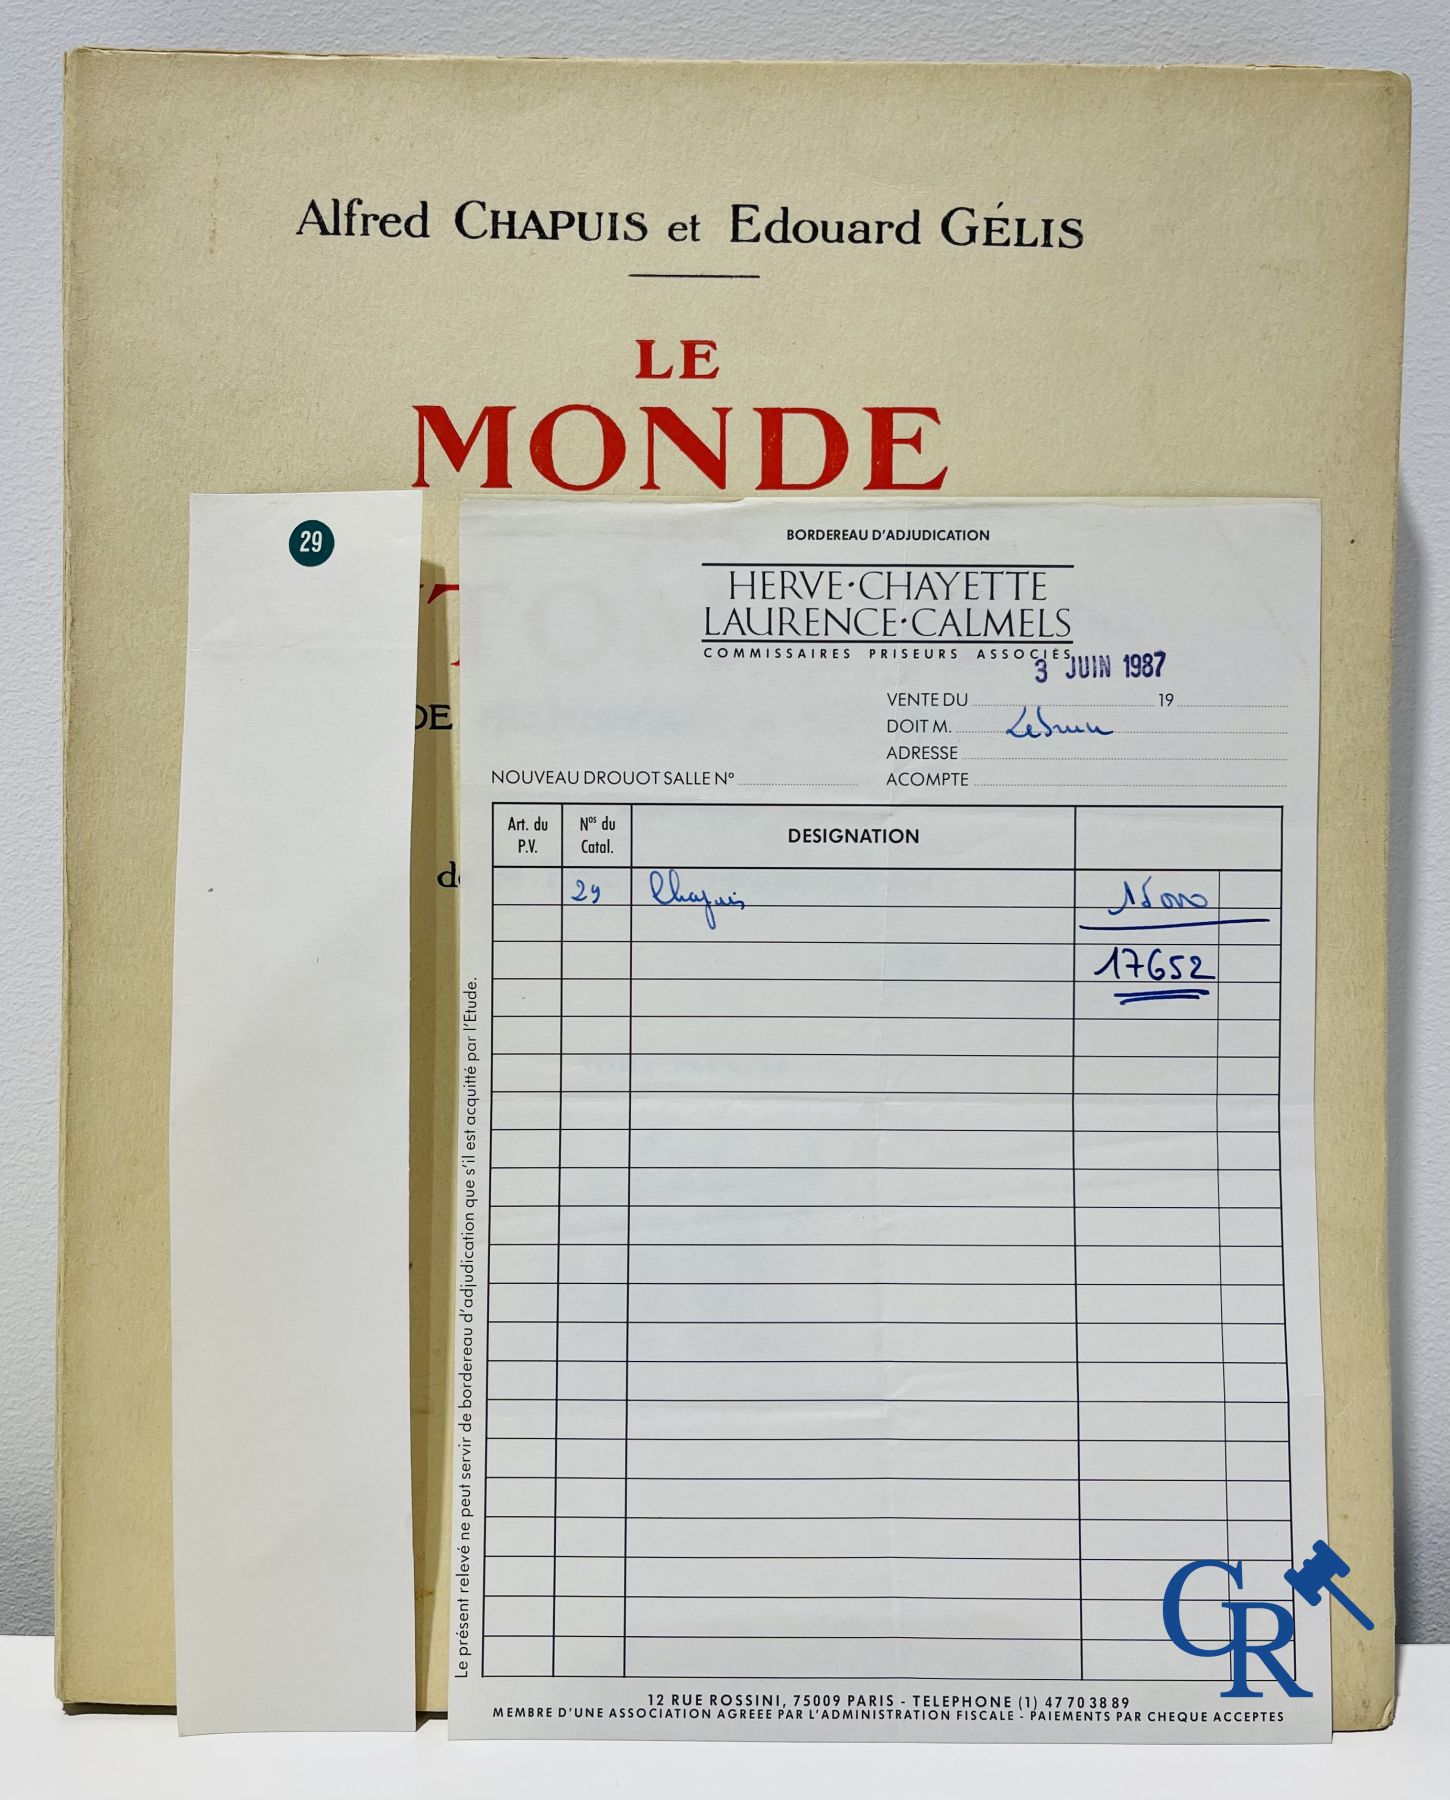 Alfred CHAPUIS et Edouard GÉLIS
LE
MONDE
DE
29
BORDEREAU D'ADJUDICATION
HERVE·CHAYETTE
LAURENCE·CALMELS
COMMISSAIRES PRISEURS ASSOCIÉS
3 JUIN 1987
VENTE DU 19
DOIT M. Lebrun
ADRESSE
NOUVEAU DROUOT SALLE Nº ACOMPTE
Art. du P.V. Nos du Catal. DESIGNATION
29 Chapuis 15000
17652
Le présent relevé ne peut servir de bordereau d'adjudication que s'il est acquitté par l'Etude.
12 RUE ROSSINI, 75009 PARIS - TELEPHONE (1) 47 70 38 89
MEMBRE D'UNE ASSOCIATION AGREEE PAR L'ADMINISTRATION FISCALE - PAIEMENTS PAR CHEQUE ACCEPTES
CR